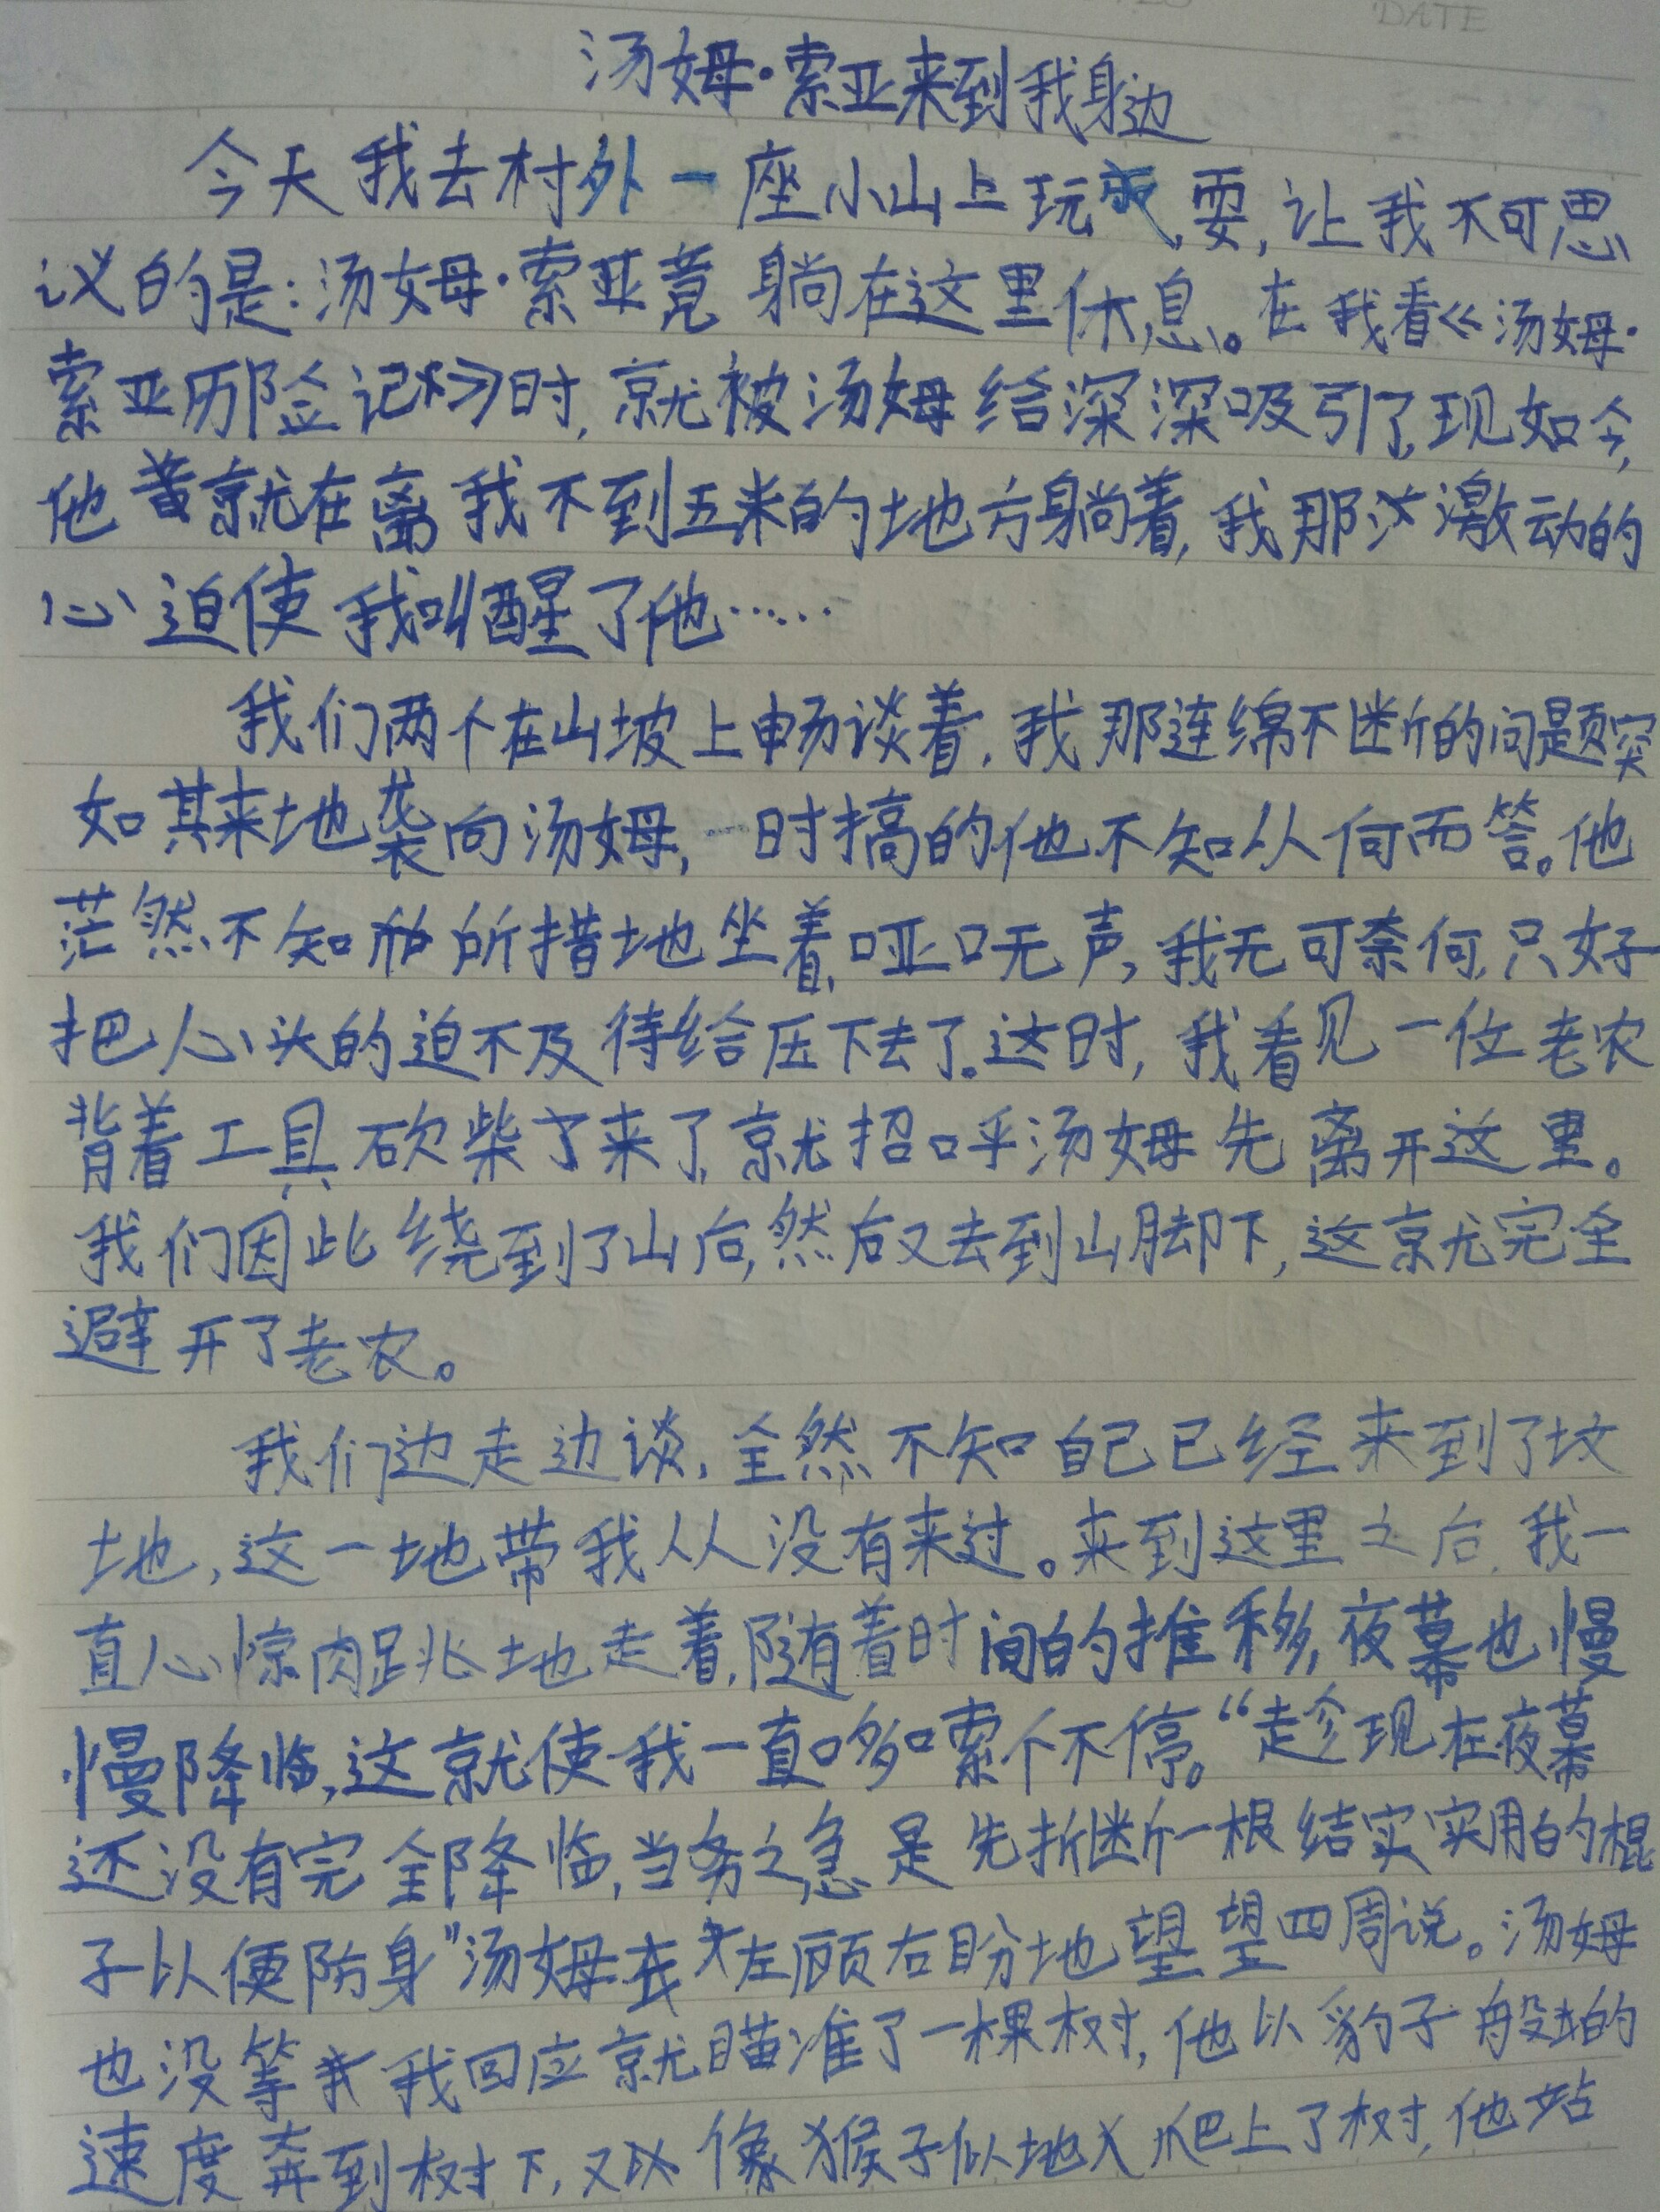 DATE
汤姆·索亚来到我身边
今天我去村外一座小山上玩耍,让我不可思
议的是:汤姆·索亚竟躺在这里休息。在我看《汤姆·
索亚历险记》时,就被汤姆给深深吸引了,现如今,
他就在离我不到五米的地方躺着,我那激动的
心迫使我叫醒了他……
我们两个在山坡上畅谈着,我那连绵不断的问题突
如其来地袭向汤姆,一时搞的他不知从何而答。他
茫然不知所措地坐着,哑口无声,我无可奈何,只好
把心头的迫不及待给压下去了。这时,我看见一位老农
背着工具砍柴来了,就招呼汤姆先离开这里。
我们因此绕到了山后,然后又去到山脚下,这就完全
避开了老农。
我们边走边谈,全然不知自己已经来到了坟
地,这一地带我从没有来过。来到这里之后,我一
直心惊肉跳地走着,随着时间的推移,夜幕也慢
慢降临,这就使我一直哆嗦个不停。“趁现在夜幕
还没有完全降临,当务之急是先折断一根结实实用的棍
子以便防身”汤姆左顾右盼地望望四周说。汤姆
也没等我回应就瞄准了一棵树,他以豹子般的
速度奔到树下,又像猴子似地爬上了树,他站